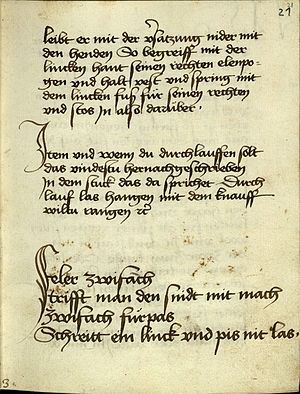 21
leibt er mit der vˢatzung nider mit
den henden So begreiff mit der
lincken hant seinen rechten elenpo¬
gen vnd halt vest vnd spring mit
dem lincken fuß für seinen rechten
vnd stos In also darüber ·
Item vnd wenn du durchlauffen solt
das vindestu hernachgeschrieben
In dem stuck das da sprichet Durch
lauf las hangen mit dem knauff
wiltu rangen ⁊c
Feler zwifach
trifft man den snidt mit mach
Zwifach fürpas
Schreitt ein linck vnd pis nit las ·